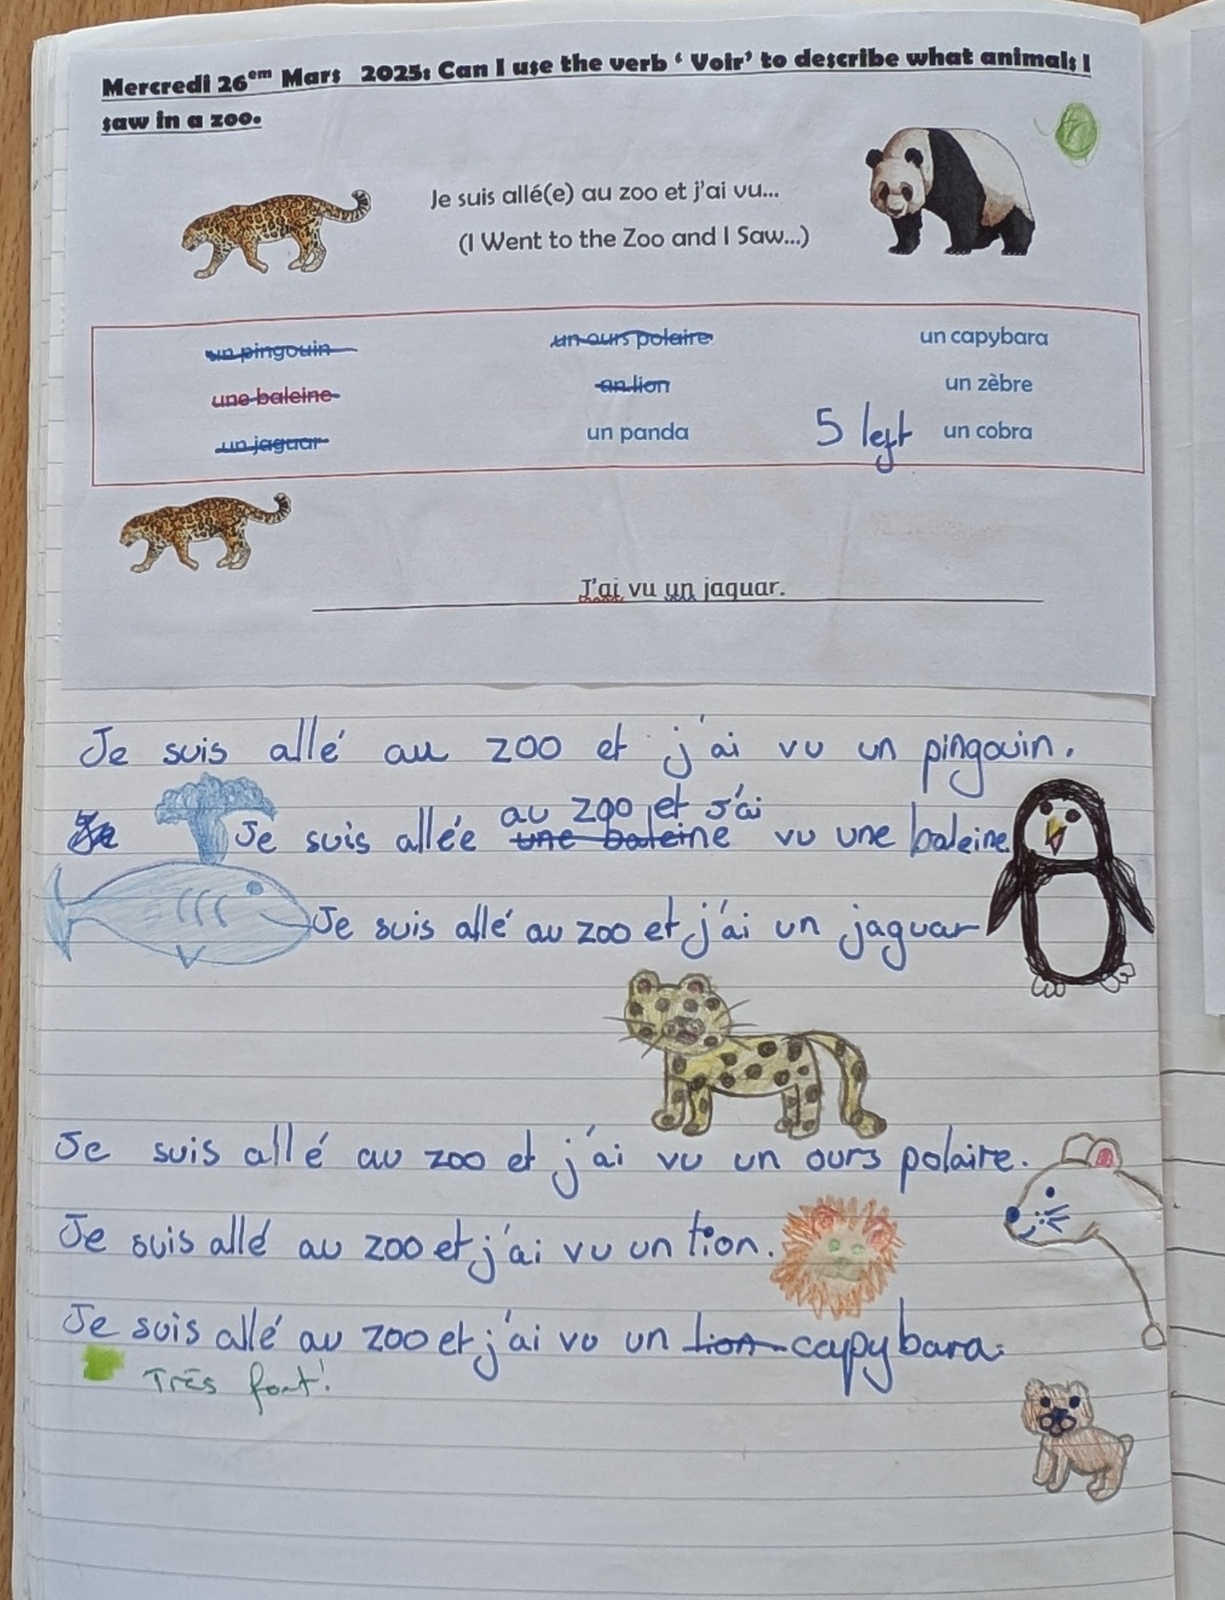 Mercredi 26em Mars 2025: Can I use the verb ‘ Voir’ to describe what animals I
saw in a zoo.
Je suis allé(e) au zoo et j'ai vu...
(I Went to the Zoo and I Saw...)
un pingouin un ours polaire un capybara
une baleine un lion un zèbre
un jaguar un panda 5 left un cobra
J'ai vu un jaguar.
Je suis allé au zoo et j'ai vu un pingouin.
au zoo et J'ai
Je suis allée une baleine vu une baleine.
Je suis allé au zoo et j'ai un jaguar
Je suis allé au zoo et j'ai vu un ours polaire.
Je suis allé au zoo et j'ai vu un lion.
Je suis allé au zoo et j'ai vu un lion capybara.
Très fort!